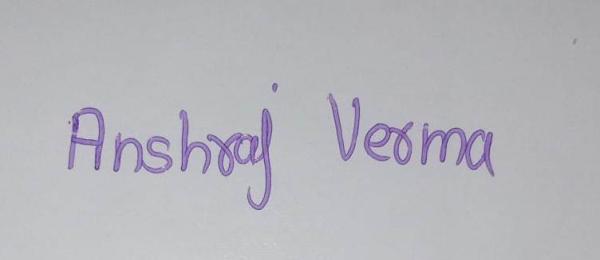 Anshraj Verma